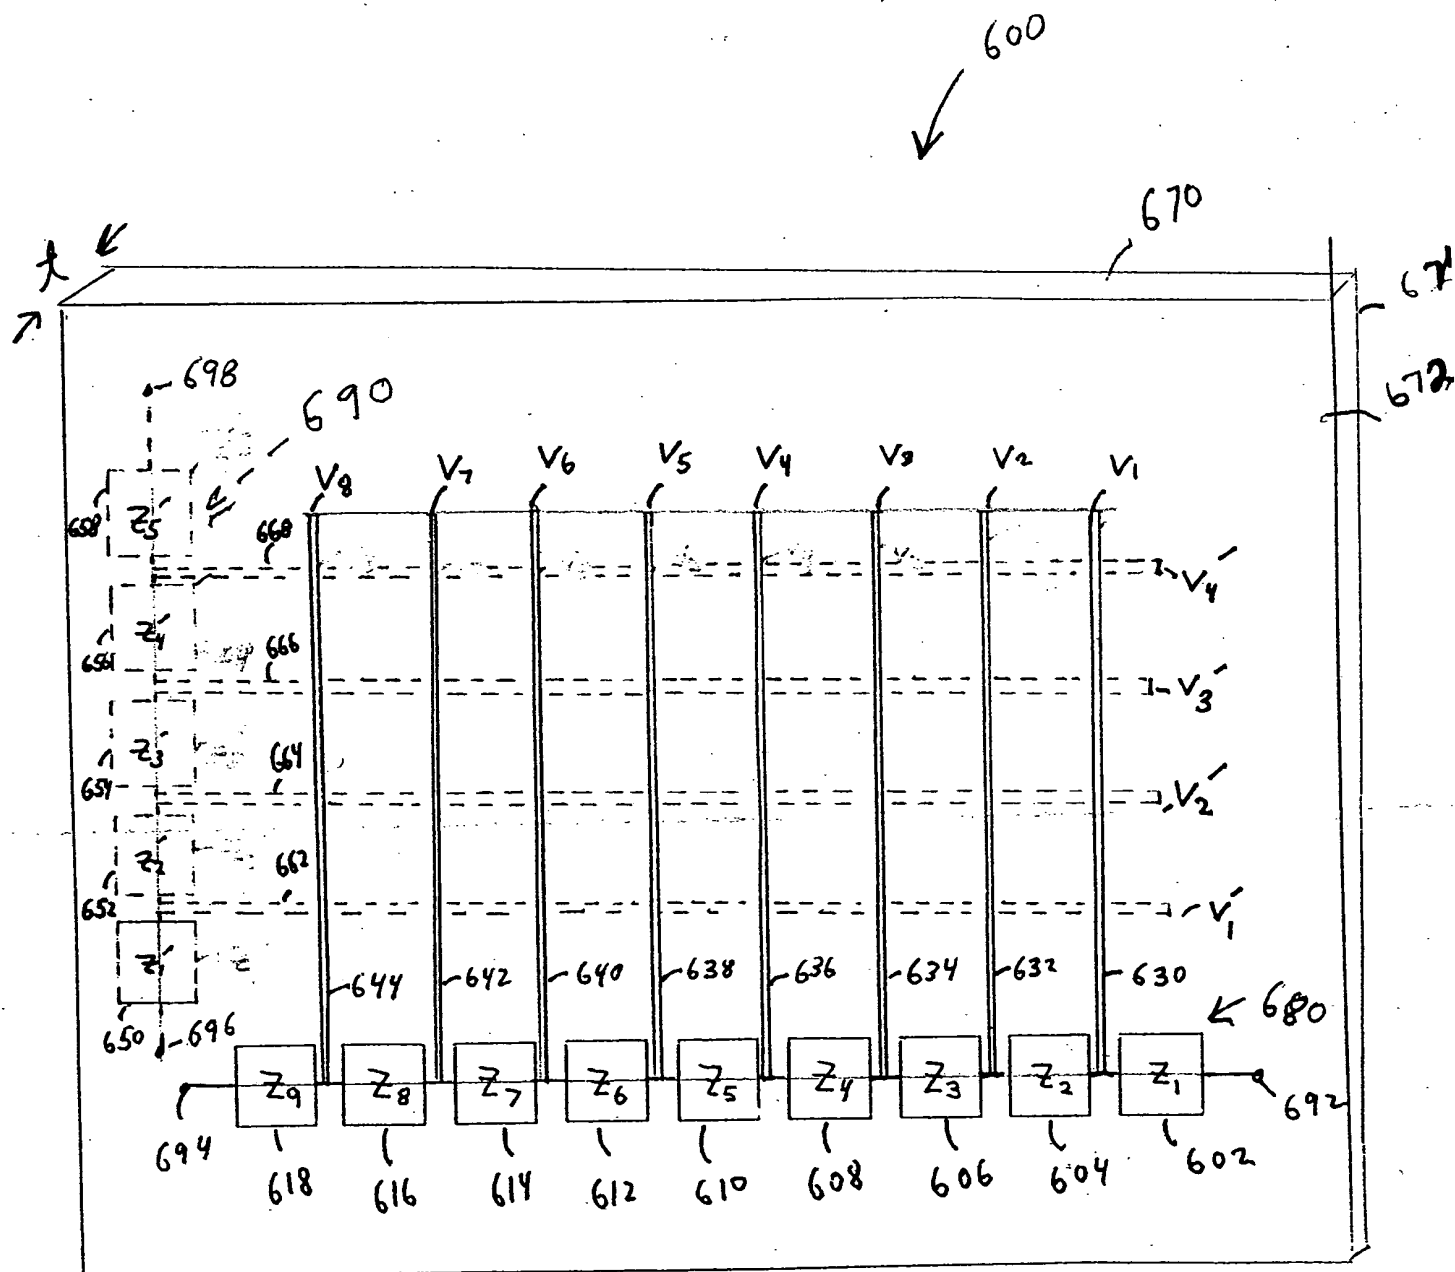 600
670
t
672
698
690
V8 V7 V6 V5 V4 V3 V2 V1
658 Z5′
668
V4′
656 Z4′
666
V3′
654 Z3′
664
V2′
652 Z2′
662
V1′
650 Z1′
696
644 642 640 638 636 634 632 630
680
Z9 Z8 Z7 Z6 Z5 Z4 Z3 Z2 Z1
694
692
618 616 614 612 610 608 606 604 602